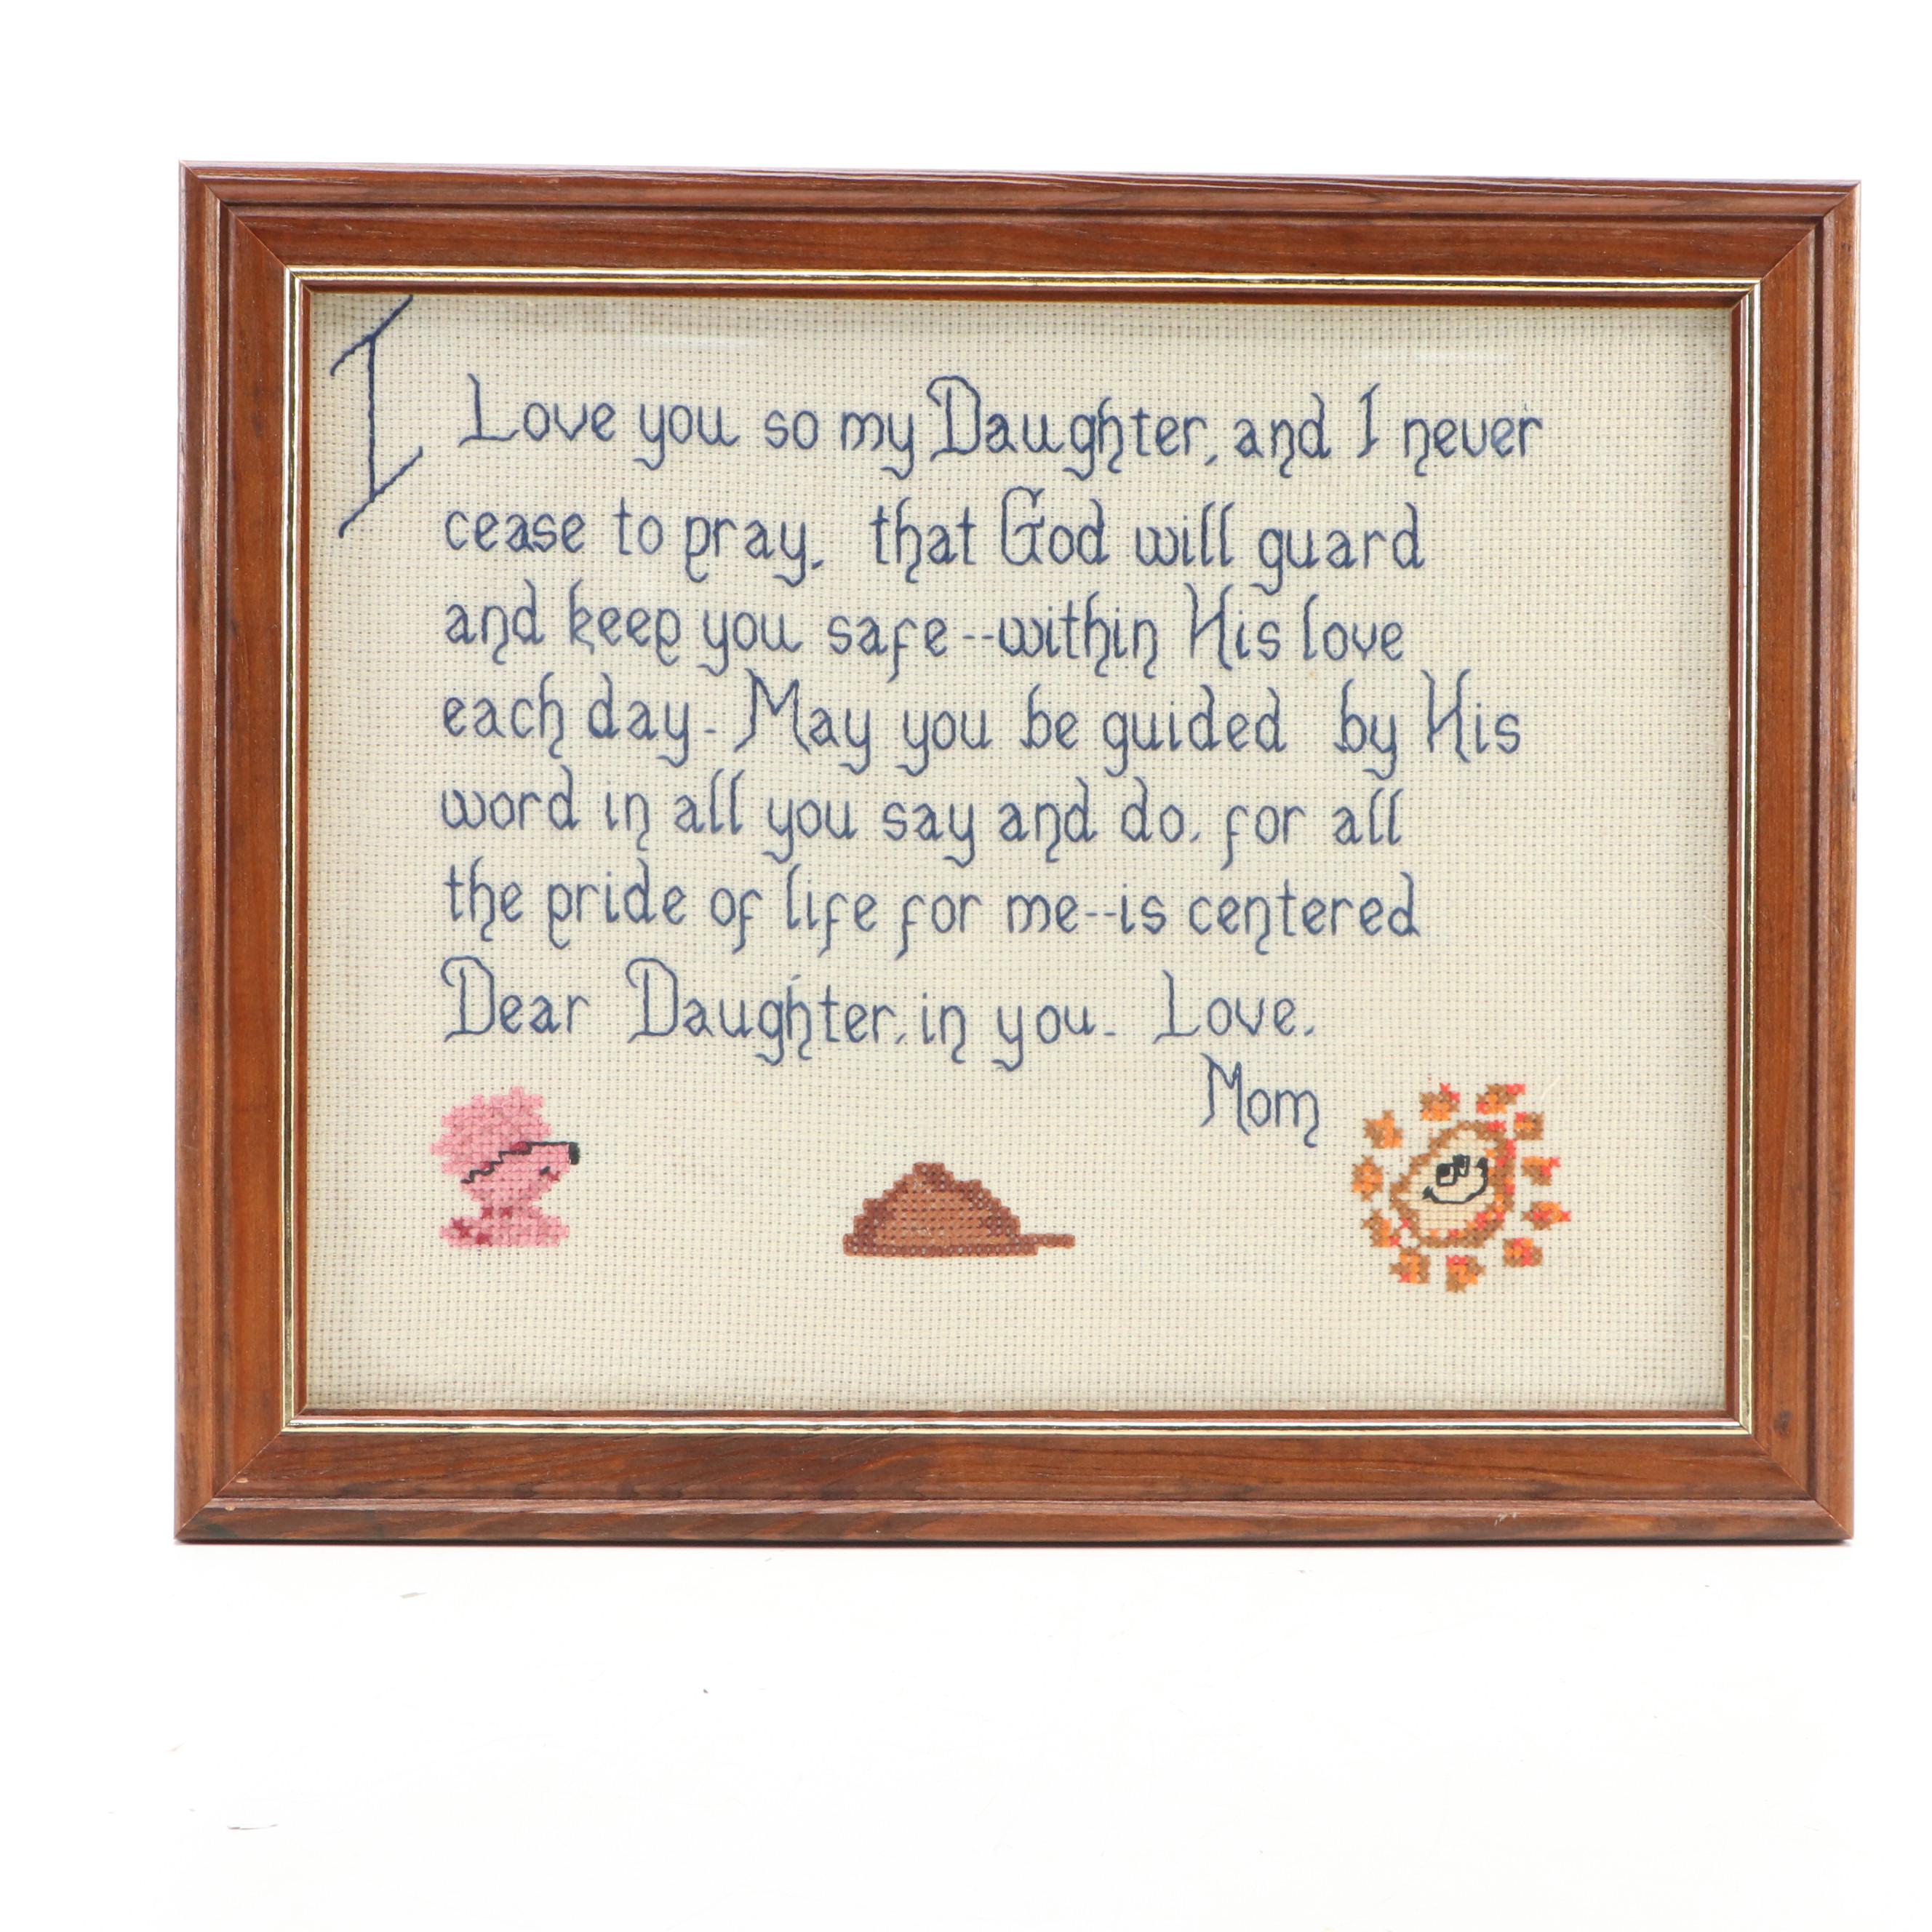 I Love you so my Daughter, and I never
cease to pray, that God will guard
and keep you safe--within His love
each day. May you be guided by His
word in all you say and do, for all
the pride of life for me--is centered
Dear Daughter, in you. Love,
Mom